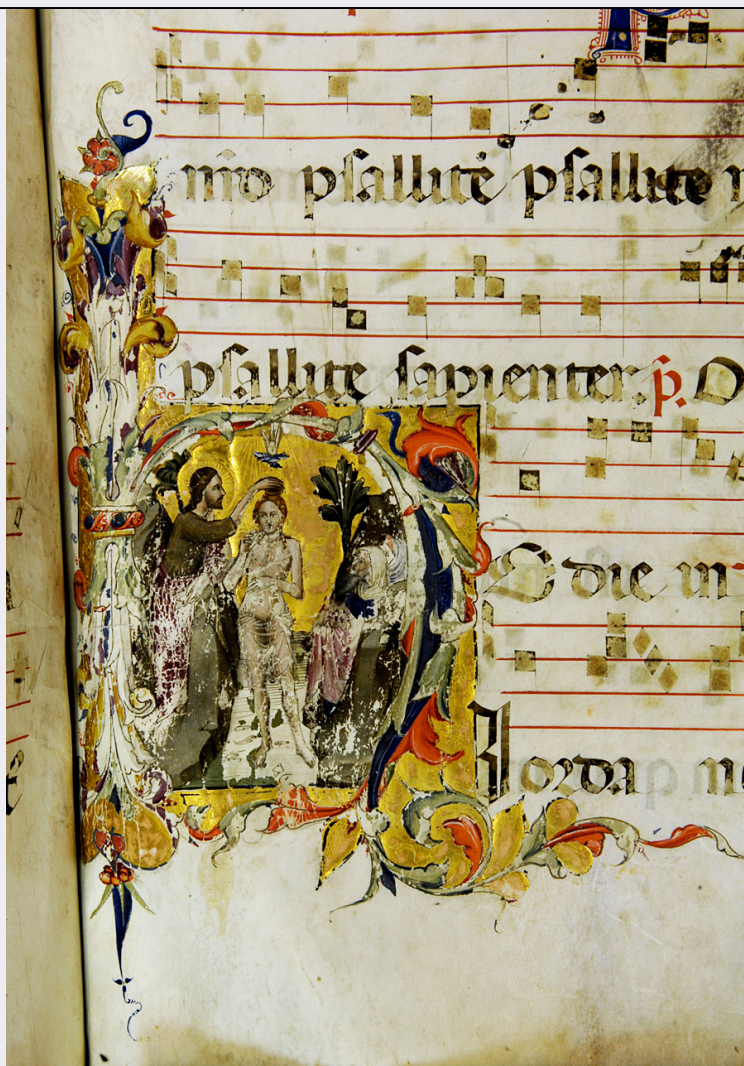 nr̄o psallite psallite
psallite sapienter. p. O
HOdie in
Jorda n